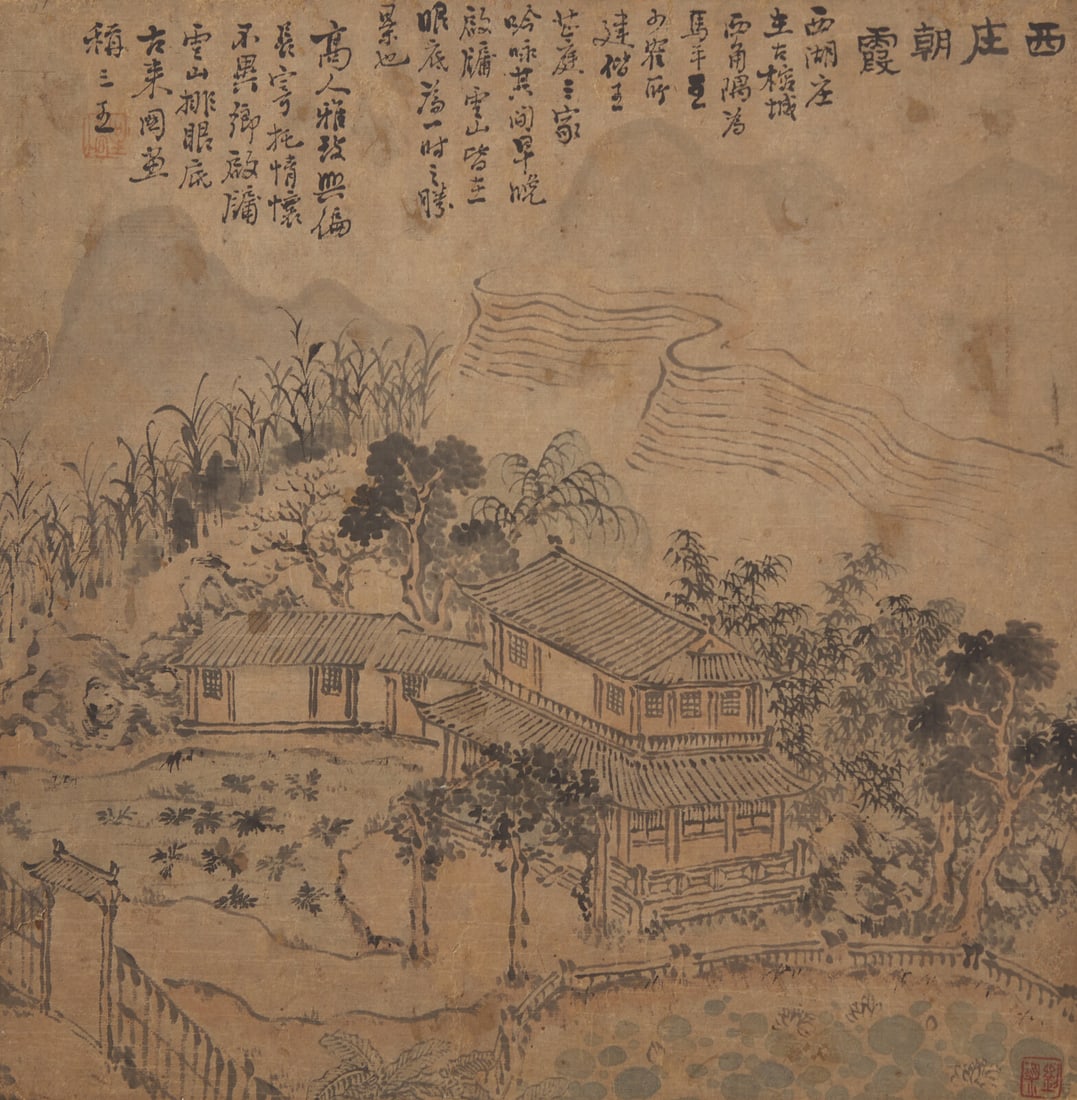 西庄朝霞
西湖庄
在古榕城
西角隅為
馬平王
少寉所
建偕王
庭三家
吟咏其间早晚
啟牖雲山皆在
眼底為一时之勝
景也
高人雅致興偏
長寄托情懷
不異鄉啟牖
雲山排眼底
古来圖畫
稱三王